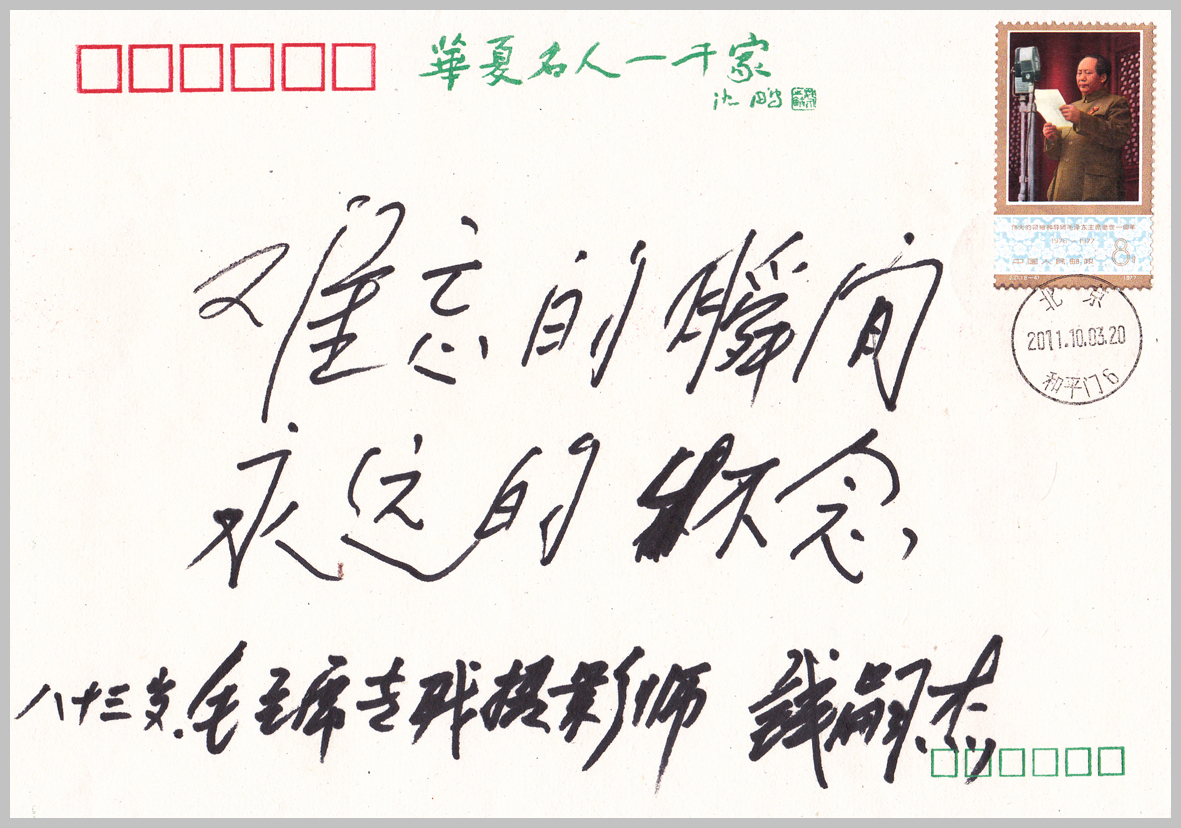 華夏名人一千家
沈鹏
伟大的领袖和导师毛泽东主席逝世一周年
1976—1977
中国人民邮政
8分
1977
北京
2011.10.03.20
和平门6
难忘的瞬间
永远的怀念
八十三岁.毛主席专职摄影师 钱嗣杰